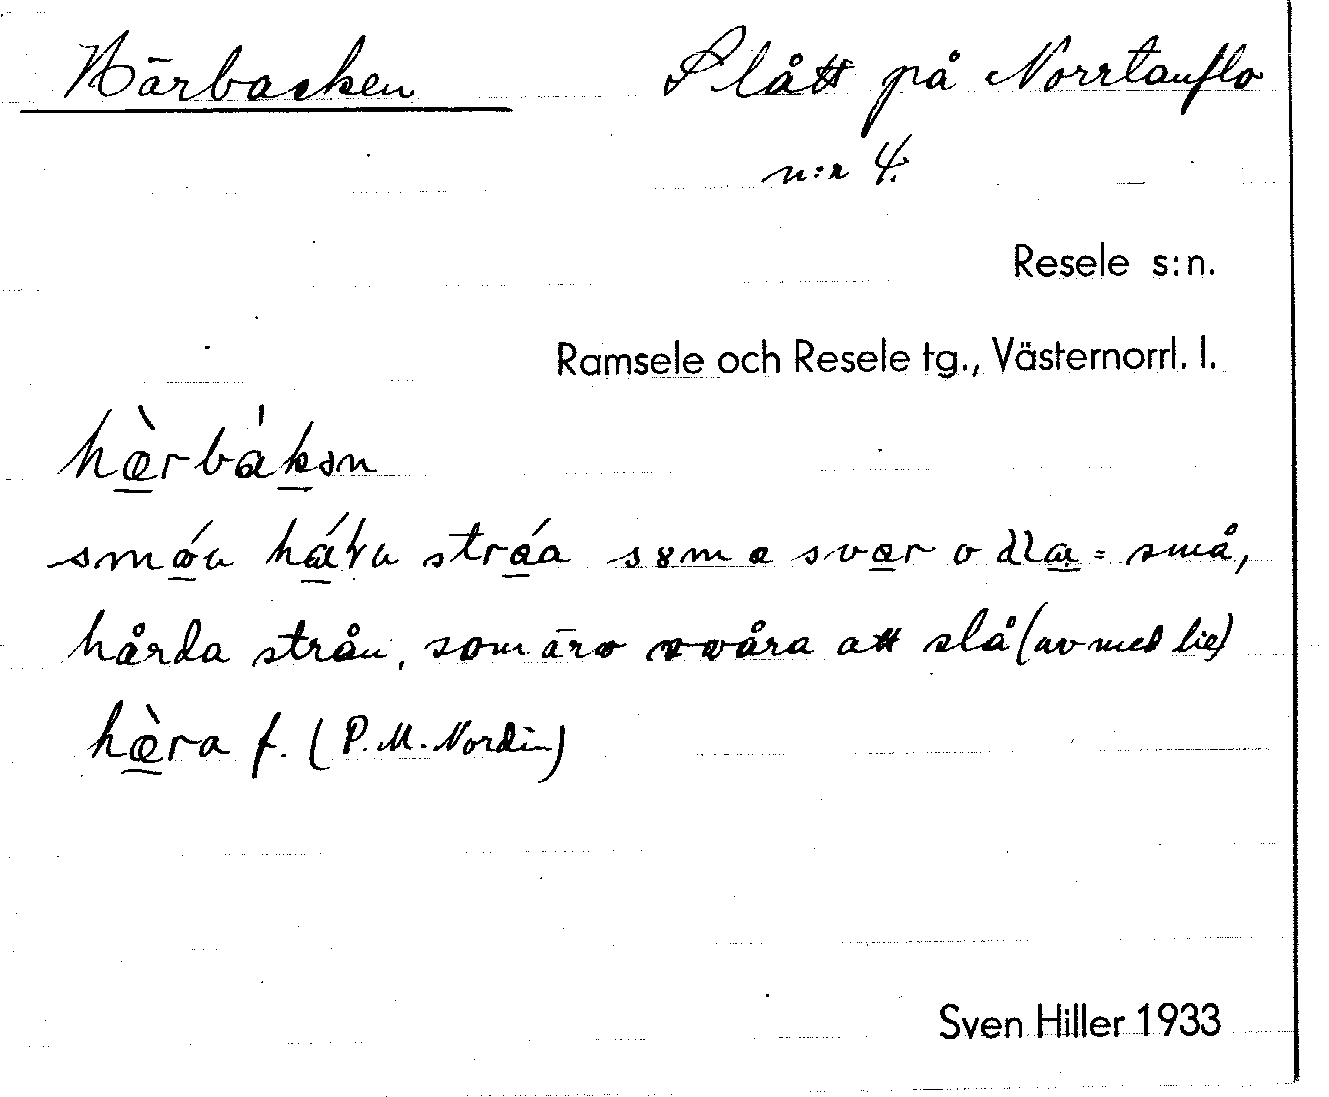 Härbacken Slått på Norrtanflo
n:r 4.
Resele s:n.
Ramsele och Resele tg., Västernorrl. l.
hæ̀rbákən
små, 
hårda strån, som äro svåra att slå (av med lie)
hæ̀ra f. (P. M. Nordin)
Sven Hiller 1933